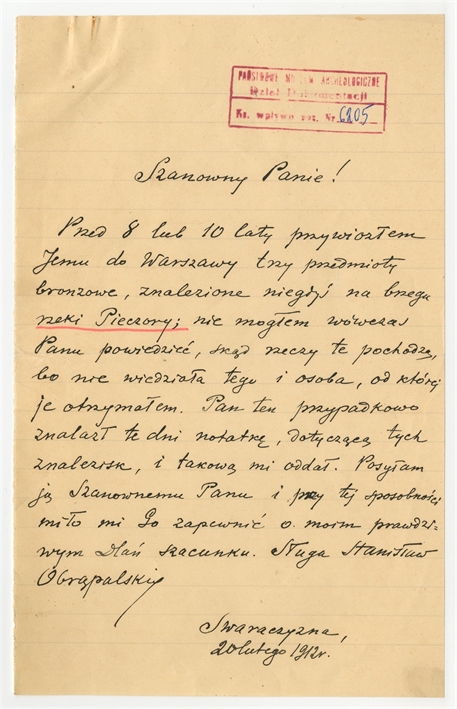 PAŃSTWOWE MUZEUM ARCHEOLOGICZNE
Dział Dokumentacji
Ks. wpływu poz. Nr. 6205
Szanowny Panie!
Przed 8 lub 10 laty przywiozłem
Jemu do Warszawy trzy przedmioty
bronzowe, znalezione niegdyś na brzegu
rzeki Pieczory; nie mogłem wówczas
Panu powiedzieć, skąd rzeczy te pochodzą,
bo nie wiedziała tego i osoba, od której
je otrzymałem. Pan ten przypadkowo
znalazł te dni notatkę, dotyczącą tych
znalezisk, i takową mi oddał. Posyłam
ją Szanownemu Panu i przy tej sposobności
miło mi Go zapewnić o moim prawdzi-
wym Dlań szacunku. Sługa Stanisław
Obrąpalski
Swaraczyzna,
20 lutego 1912 r.